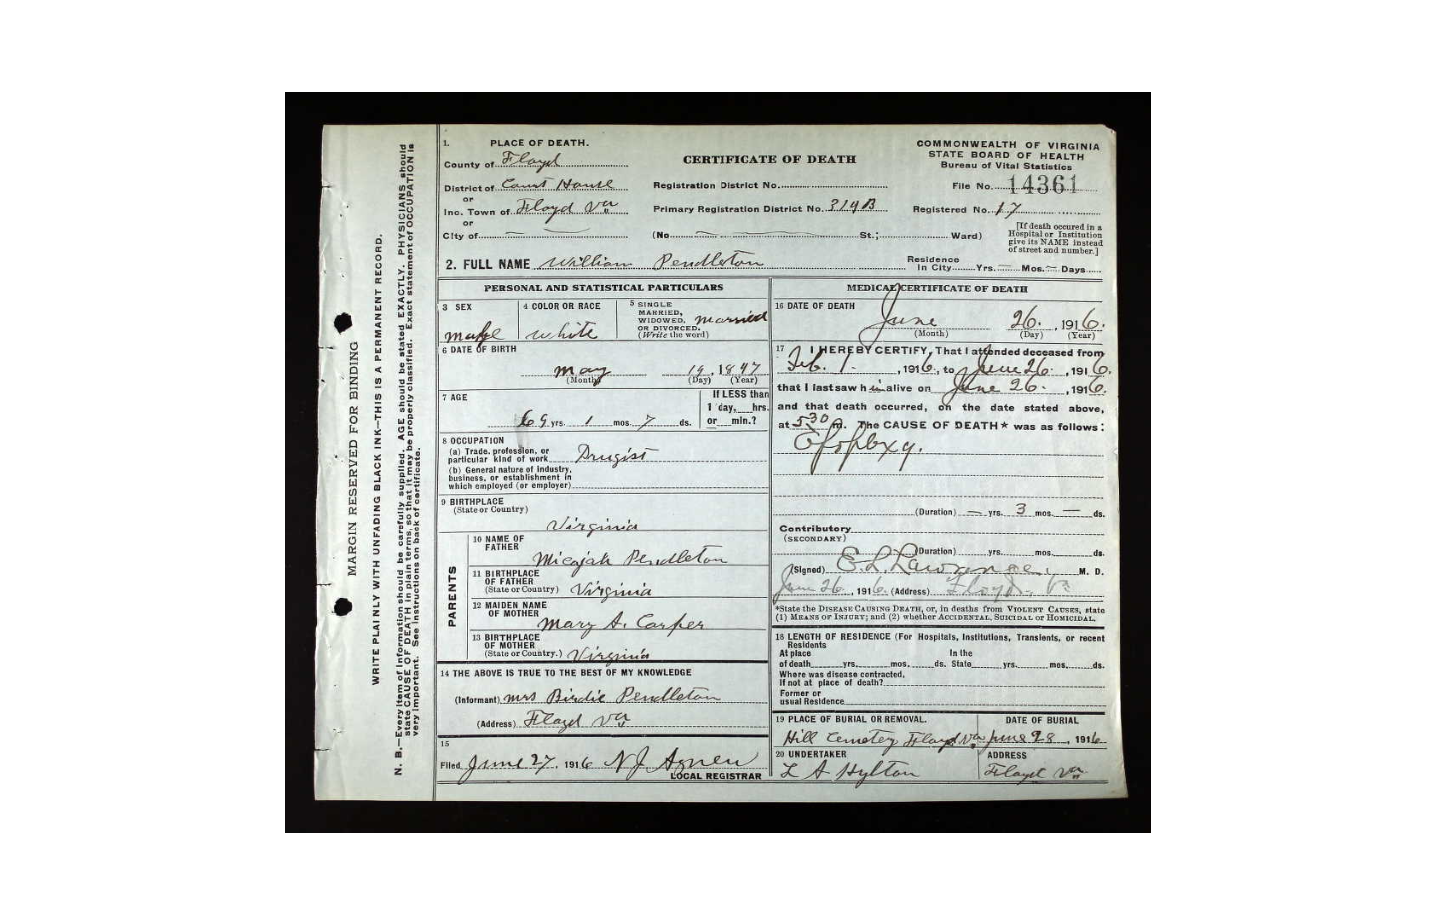 MARGIN RESERVED FOR BINDING
WRITE PLAINLY WITH UNFADING BLACK INK—THIS IS A PERMANENT RECORD.
N. B.—Every item of information should be carefully supplied. AGE should be stated EXACTLY. PHYSICIANS should
state CAUSE OF DEATH in plain terms, so that it may be properly classified. Exact statement of OCCUPATION is
very important. See instructions on back of certificate.
1. PLACE OF DEATH.
County of Floyd
District of Court House
or
Inc. Town of Floyd Va
or
City of
CERTIFICATE OF DEATH
Registration District No.
Primary Registration District No. 319B
(No. St.; Ward)
COMMONWEALTH OF VIRGINIA
STATE BOARD OF HEALTH
Bureau of Vital Statistics
File No. 14361
Registered No. 17
[If death occured in a
Hospital or Institution
give its NAME instead
of street and number.]
2. FULL NAME William Pendleton
Residence
In City Yrs. Mos. Days
PERSONAL AND STATISTICAL PARTICULARS
3 SEX
male
4 COLOR OR RACE
white
5 SINGLE
MARRIED,
WIDOWED,
OR DIVORCED.
(Write the word)
married
6 DATE OF BIRTH
May 19, 1847
(Month) (Day) (Year)
7 AGE
69 yrs. 1 mos. 7 ds.
If LESS than
1 day, hrs.
or min.?
8 OCCUPATION
(a) Trade, profession, or
particular kind of work Drugist
(b) General nature of industry,
business, or establishment in
which employed (or employer)
9 BIRTHPLACE
(State or Country)
Virginia
PARENTS
10 NAME OF
FATHER
Micajah Pendleton
11 BIRTHPLACE
OF FATHER
(State or Country) Virginia
12 MAIDEN NAME
OF MOTHER
Mary A. Carper
13 BIRTHPLACE
OF MOTHER
(State or Country.) Virginia
14 THE ABOVE IS TRUE TO THE BEST OF MY KNOWLEDGE
(Informant) Mrs Birdie Pendleton
(Address) Floyd Va
15
Filed June 27, 1916 N J Agnew
LOCAL REGISTRAR
MEDICAL CERTIFICATE OF DEATH
16 DATE OF DEATH
June 26, 1916.
(Month) (Day) (Year)
17 I HEREBY CERTIFY, That I attended deceased from
Feb. 1, 1916, to June 26, 1916,
that I last saw him alive on June 26, 1916.
and that death occurred, on the date stated above,
at 5 30 m. The CAUSE OF DEATH* was as follows:
(Duration) — yrs. 3 mos. — ds.
Contributory
(SECONDARY)
(Duration) yrs. mos. ds.
(Signed) M. D.
June 26, 1916. (Address) Floyd. Va
*State the DISEASE CAUSING DEATH, or, in deaths from VIOLENT CAUSES, state
(1) MEANS OF INJURY; and (2) whether ACCIDENTAL, SUICIDAL or HOMICIDAL.
18 LENGTH OF RESIDENCE (For Hospitals, Institutions, Transients, or recent
Residents
At place In the
of death yrs. mos. ds. State yrs. mos. ds.
Where was disease contracted,
If not at place of death?
Former or
usual Residence
19 PLACE OF BURIAL OR REMOVAL. DATE OF BURIAL
Hill Cemetey Floyd Va June 28, 1916
20 UNDERTAKER ADDRESS
L A Hylton Floyd Va